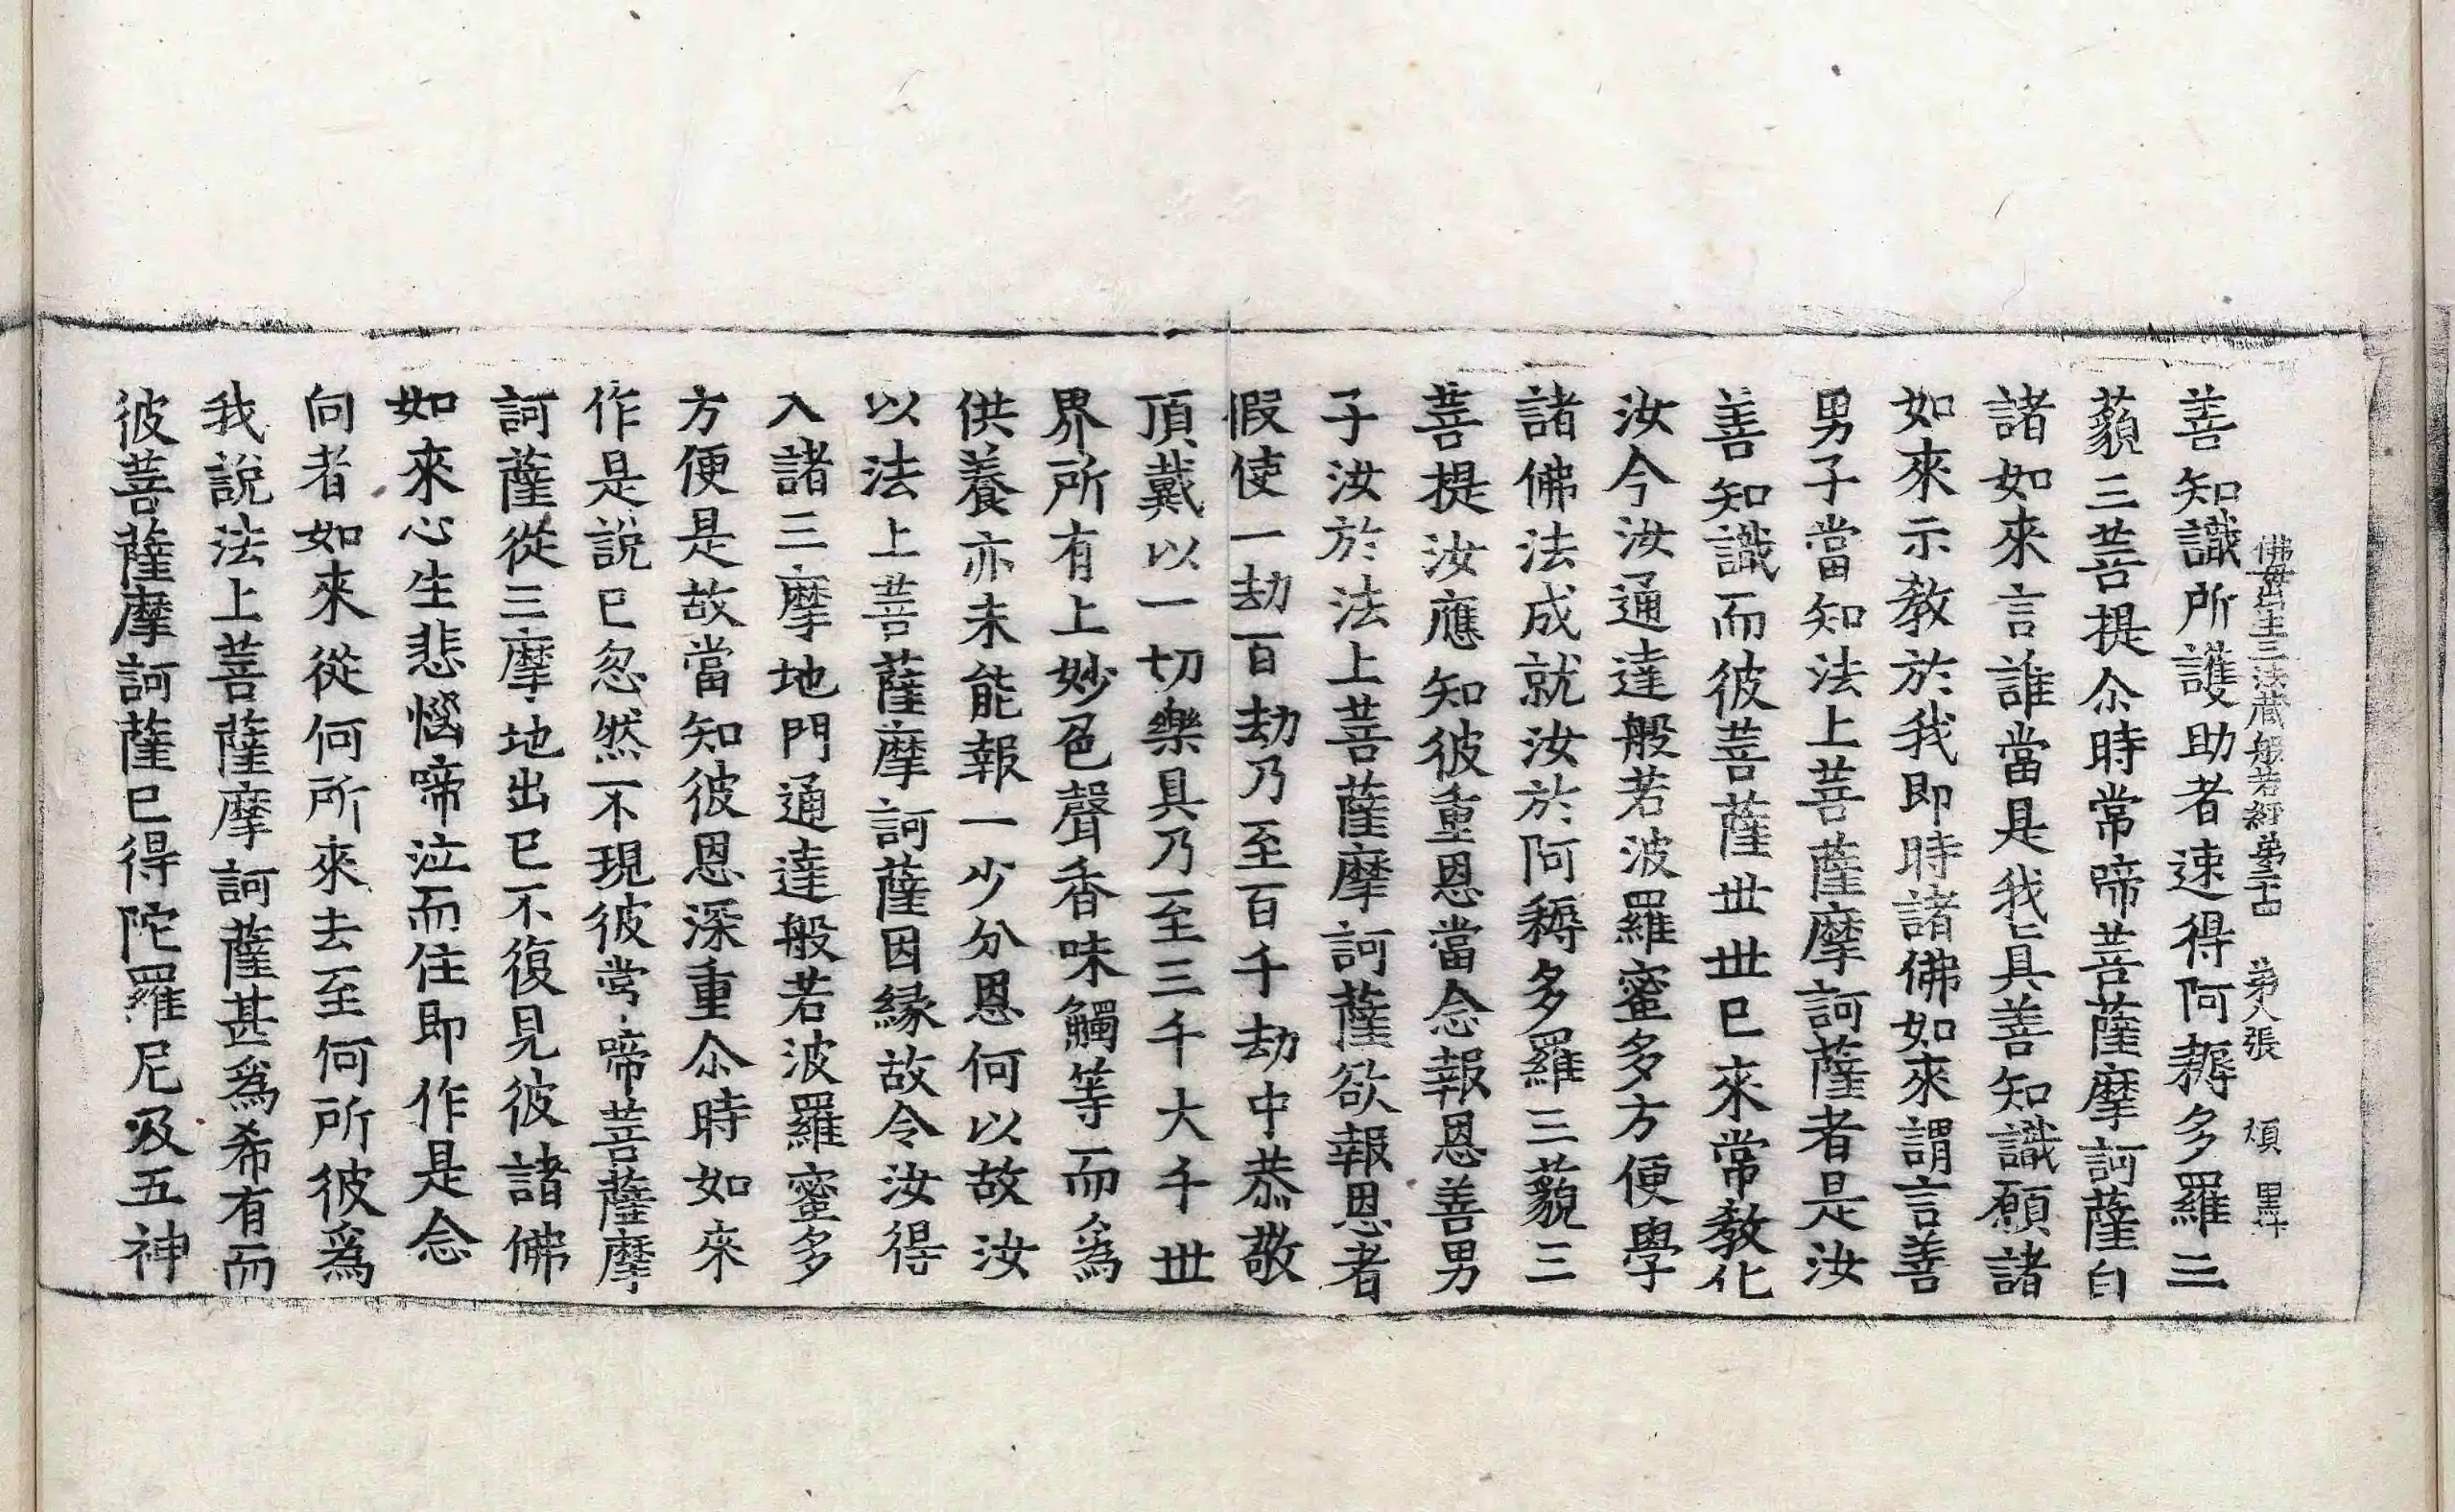 善知識所護助者速得阿耨多羅三
佛母出生三法藏般若經第二十四 第八張 順 黑
藐三菩提尒時常啼菩薩摩訶薩白
諸如來言誰當是我具善知識願諸
如來示教於我即時諸佛如來謂言善
男子當知法上菩薩摩訶薩者是汝
善知識而彼菩薩世世已來常教化
汝令汝通達般若波羅蜜多方便學
諸佛法成就汝於阿耨多羅三藐三
菩提汝應知彼重恩當念報恩善男
子汝於法上菩薩摩訶薩欲報恩者
假使一劫百劫乃至百千劫中恭敬
頂戴以一切樂具乃至三千大千世
界所有上妙色聲香味觸等而爲
供養亦未能報一少分恩何以故汝
以法上菩薩摩訶薩因緣故令汝得
入諸三摩地門通達般若波羅蜜多
方便是故當知彼恩深重尒時如來
作是說已忽然不現彼常啼菩薩摩
訶薩從三摩地出已不復見彼諸佛
如來心生悲惱啼泣而住即作是念
向者如來從何所來去至何所彼爲
我說法上菩薩摩訶薩甚爲希有而
彼菩薩摩訶薩已得陀羅尼及五神